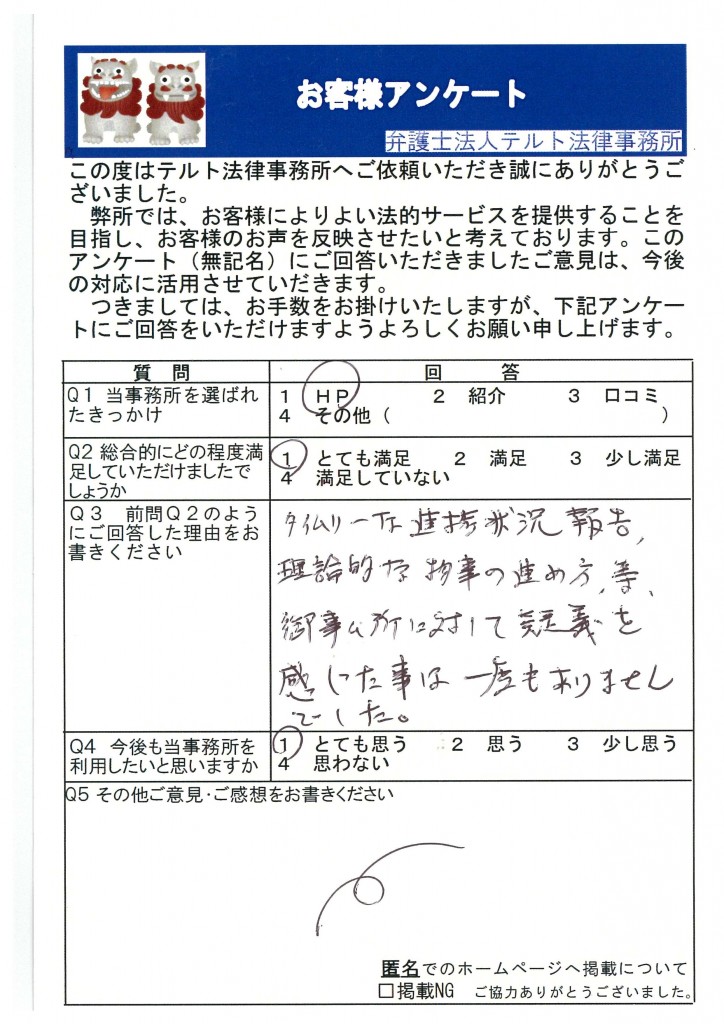 お客様アンケート
弁護士法人テルト法律事務所
この度はテルト法律事務所へご依頼いただき誠にありがとうご
ざいました。
弊所では、お客様によりよい法的サービスを提供することを
目指し、お客様のお声を反映させたいと考えております。この
アンケート（無記名）にご回答いただきましたご意見は、今後
の対応に活用させていだきます。
つきましては、お手数をお掛けいたしますが、下記アンケー
トにご回答をいただけますようよろしくお願い申し上げます。
質　問　回　答
Ｑ１ 当事務所を選ばれ
たきっかけ
１　ＨＰ　２　紹介　３　口コミ
４　その他（　　）
Ｑ２ 総合的にどの程度満
足していただけましたで
しょうか
１　とても満足　２　満足　３　少し満足
４　満足していない
Ｑ３　前問Ｑ２のよう
にご回答した理由をお
書きください
タイムリーな進捗状況報告、
理論的な物事の進め方、等、
御事ム所に対して疑義を
感じた事は一度もありません
でした。
Ｑ４　今後も当事務所を
利用したいと思いますか
１　とても思う　２　思う　３　少し思う
４　思わない
Ｑ５ その他ご意見・ご感想をお書きください
匿名でのホームページへ掲載について
□掲載NG　ご協力ありがとうございました。